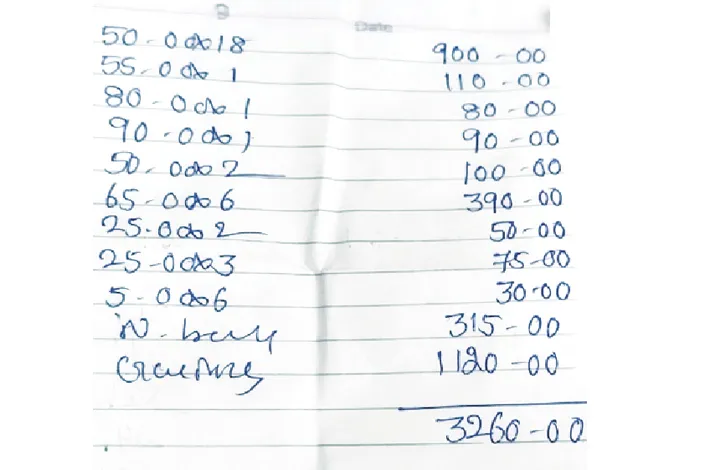 B Date
50-00x18 900-00
55-00x 1 110-00
80-00x 1 80-00
90-00x 1 90-00
50-00x 2 100-00
65-00x 6 390-00
25-00x 2 50-00
25-00x3 75-00
5-00x6 30-00
315-00
1120-00
3260-00